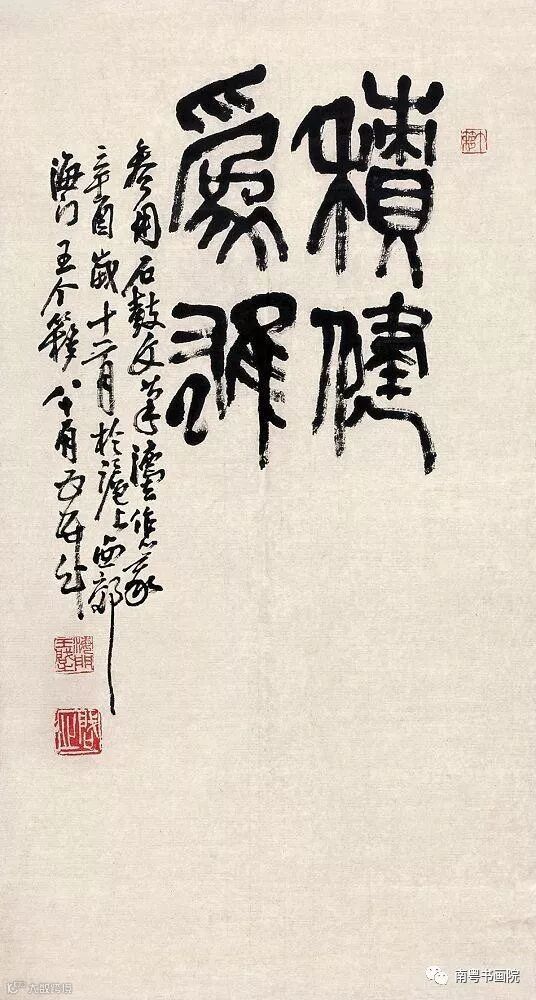 積健
爲雄
參用石鼓文筆灋作篆
辛酉歲十月於滬上西郊
海門王个簃八十有五
南粤书画院
大数跨境